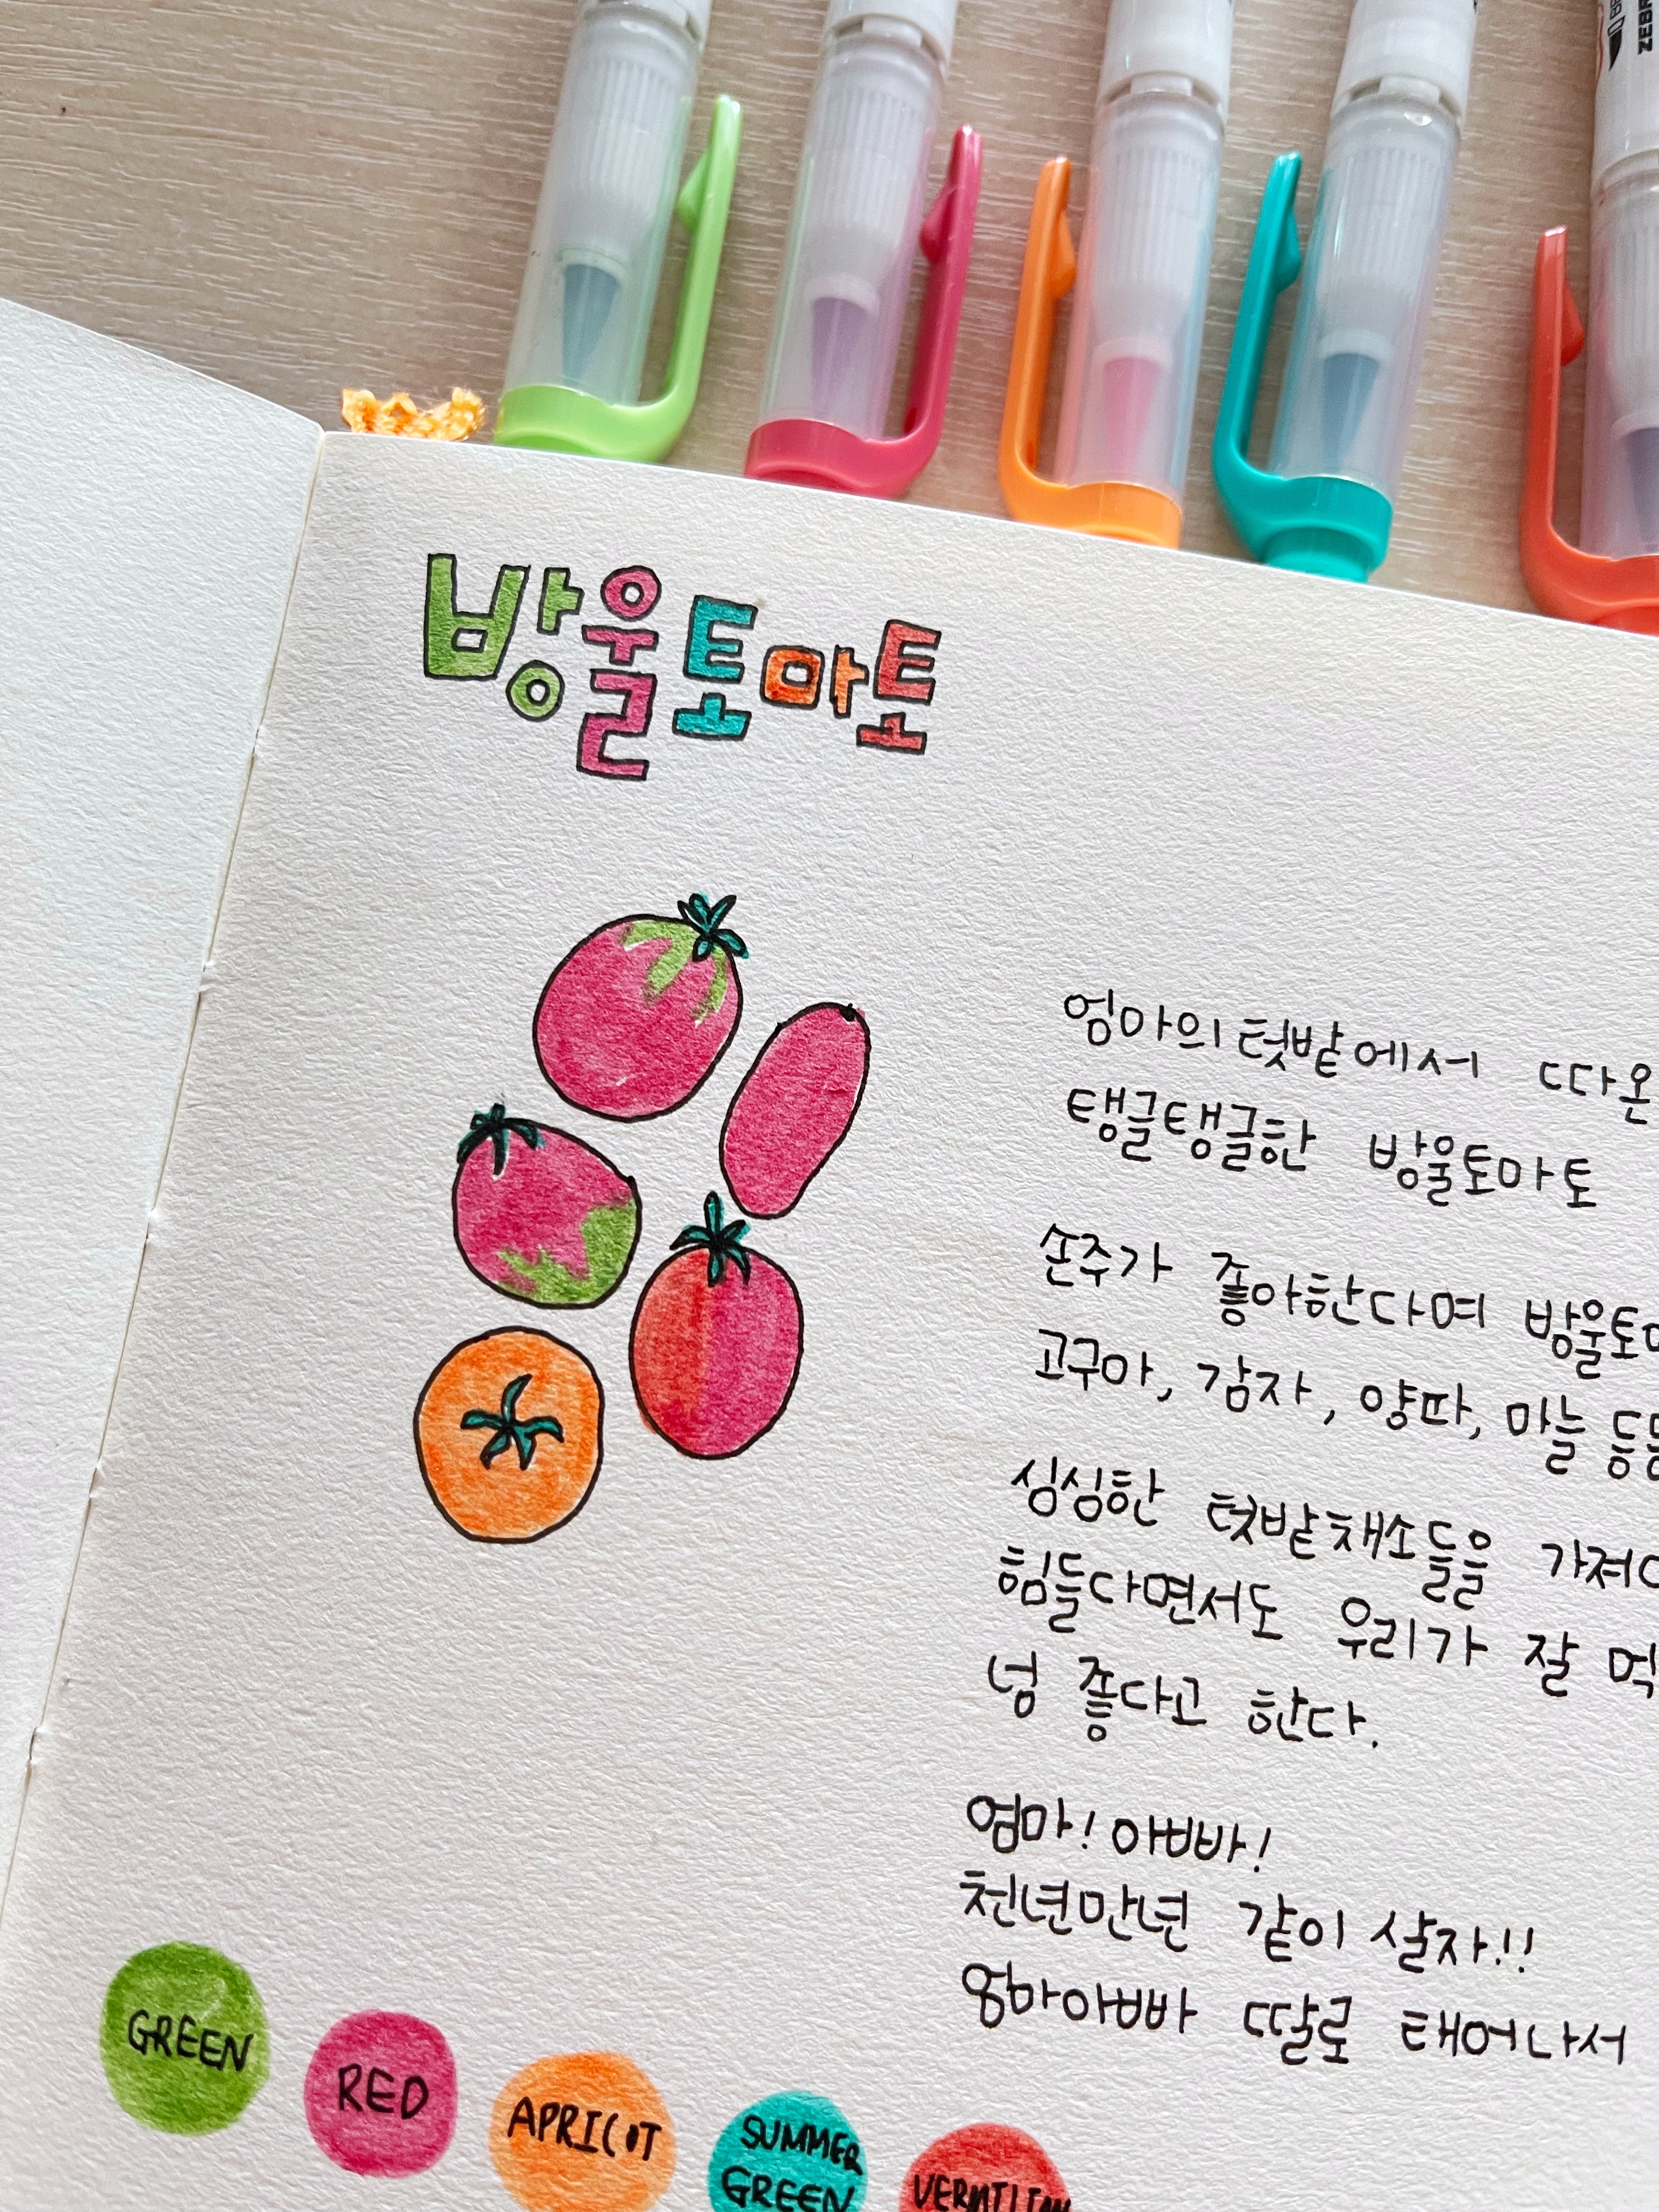 ZEBR
방울토마토
엄마의 텃밭에서 따온
탱글탱글한 방울토마토
손주가 좋아한다며 방울토마
고구마, 감자, 양파, 마늘 등등
싱싱한 텃밭채소들을 가져다
힘들다면서도 우리가 잘 먹
넘 좋다고 한다.
엄마! 아빠!
천년만년 같이 살자!!!
엄마아빠 딸로 태어나서
GREEN
RED
APRICOT
SUMMER
GREEN
VERMILION